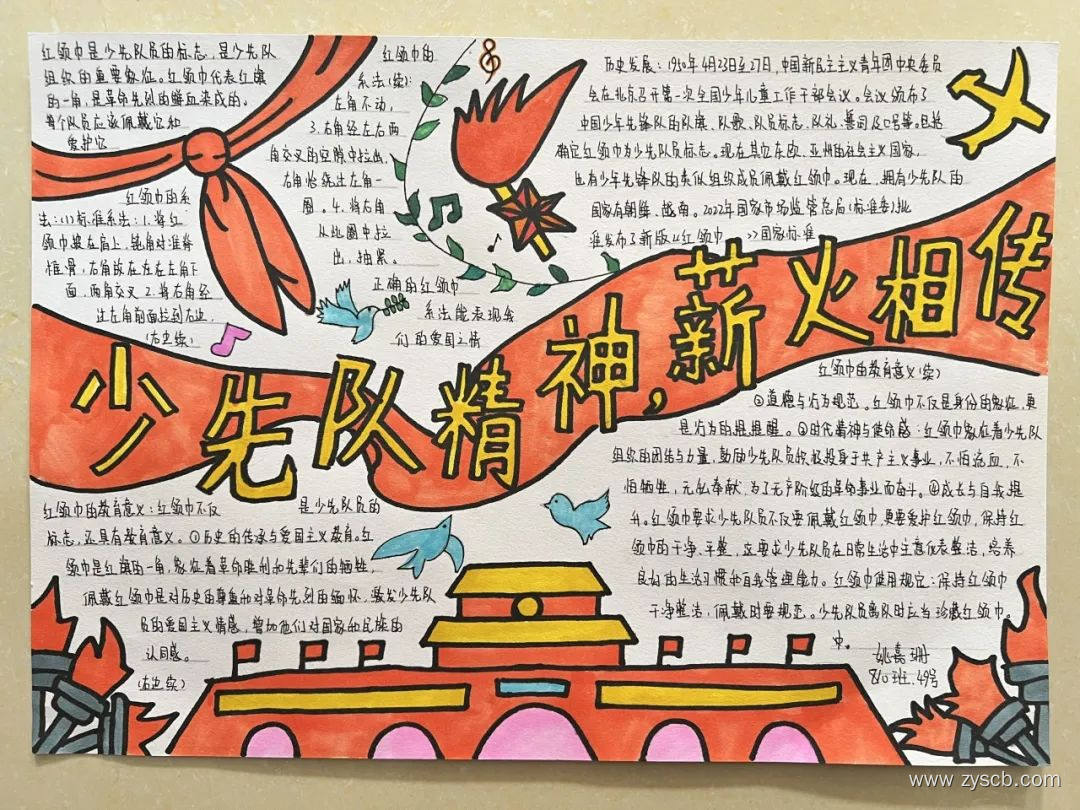 红领巾是少先队员的标志，是少先队
组织的重要象征。红领巾代表红旗
的一角，是革命先烈的鲜血染成的。
每个队员应该佩戴它和
爱护它
红领巾的系
法：(1)标准系法：1.将红
领巾披在肩上，钝角对准脊
椎骨，右角放在左右左角下
面，两角交叉 2.将右角经
过左角前面拉到右边，
(右边续)
红领巾的
系法(续)：
左角不动，
3.右角经左右两
角交叉的空隙中拉出，
右角恰绕过左角一
圈。4.将右角
从此圈中拉
出，抽紧。
正确的红领巾
系法能表现我
们的爱国之情
历史发展：1950年4月23日至27日，中国新民主主义青年团中央委员
会在北京召开第一次全国少年儿童工作干部会议。会议颁布了
中国少年先锋队的队旗、队歌、队员标志、队礼、誓词及口号等。且论
确定红领巾为少先队员标志。现在其它东欧、亚州的社会主义国家，
也有少年先锋队的类似组织成员佩戴红领巾。现在，拥有少先队的
国家有朝鲜、越南。2022年国家市场监管总局(标准委)批
准发布了新版《红领巾》国家标准
少先队精神，薪火相传
红领巾的教育意义：红领巾不仅是少先队员的
标志，还具有教育意义。①历史的传承与爱国主义教育。红
领巾是红旗的一角，象征着革命胜利和先辈们的牺牲，
佩戴红领巾是对历史的尊重和对革命先烈的缅怀，激发少先队
员的爱国主义情感，增加他们对国家和民族的
认同感。
(右边续)
红领巾的教育意义(续)
②道德与行为规范。红领巾不仅是身份的象征，更
是行为的提醒。③时代精神与使命感：红领巾象征着少先队
组织的团结与力量，鼓励少先队员积极投身于共产主义事业，不怕流血，不
怕牺牲，无私奉献，为了无产阶级的革命事业而奋斗。④成长与自我提
升。红领巾要求少先队员不仅要佩戴红领巾，更要爱护红领巾，保持红
领巾的干净、平整，这要求少先队员在日常生活中注意仪表整洁，培养
良好的生活习惯和自我管理能力。红领巾使用规定：保持红领巾
干净整洁，佩戴时要规范。少先队员离队时应当珍藏红领巾。
中。
姚嘉珊
8(1)班.49号
www.zyscb.com